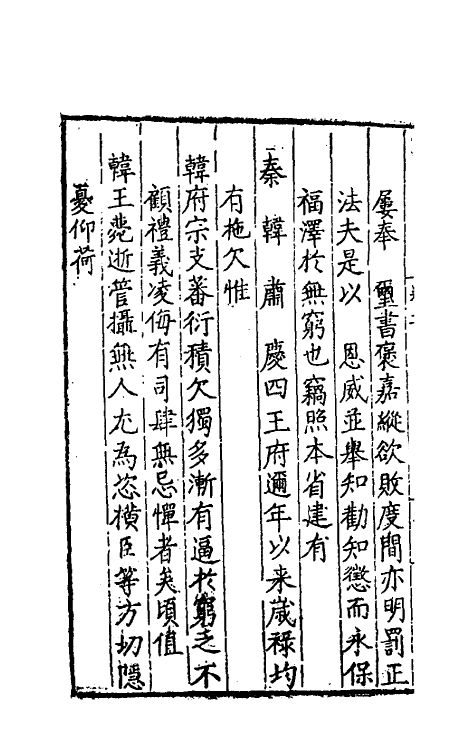 屢奉　璽書褒嘉縱欲敗度間亦明罰正
法夫是以　恩威並舉知勸知懲而永保
福澤於無窮也竊照本省建有
秦　韓　肅　慶四王府邇年以来嵗祿均
有拖欠惟
韓府宗支蕃衍積欠獨多漸有逼於窮乏不
顧禮義凌侮有司肆無忌憚者矣頃值
韓王薨逝管攝無人尤為恣横臣等方切隱
憂仰荷